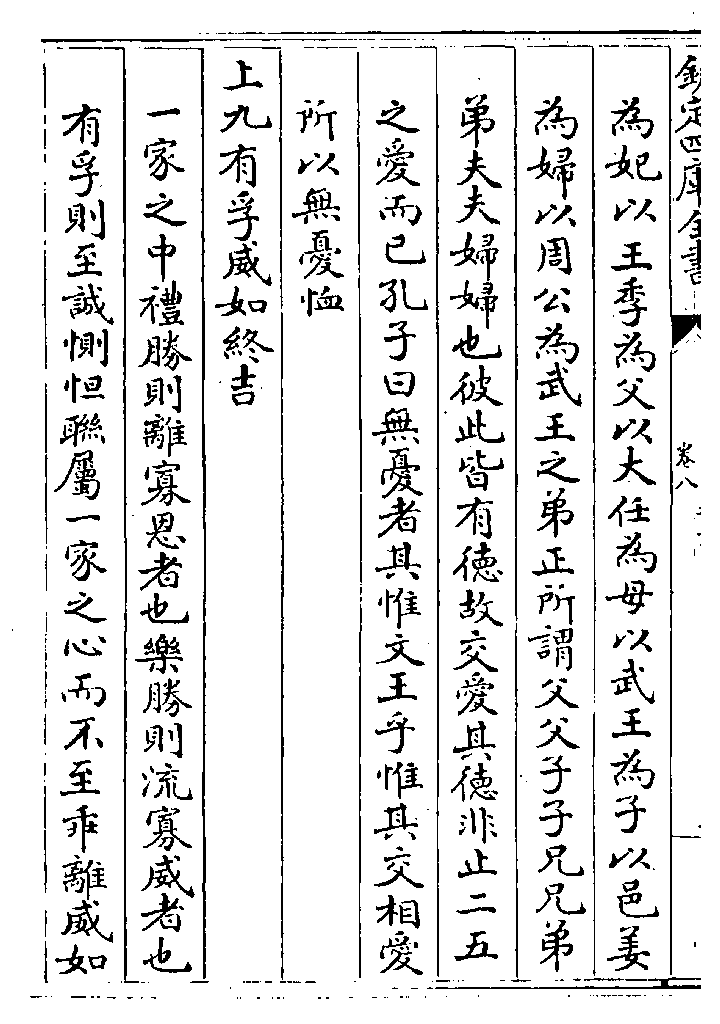 欽定四庫全書
卷八
為妃以王季為父以大任為母以武王為子以邑姜
為婦以周公為武王之弟正所謂父父子子兄兄弟
弟夫夫婦婦也彼此皆有徳故交愛其徳非止二五
之愛而已孔子曰無憂者其惟文王乎惟其交相愛
所以無憂恤
上九有孚威如終吉
一家之中禮勝則離寡恩者也樂勝則流寡威者也
有孚則至誠惻怛聯屬一家之心而不至乖離威如